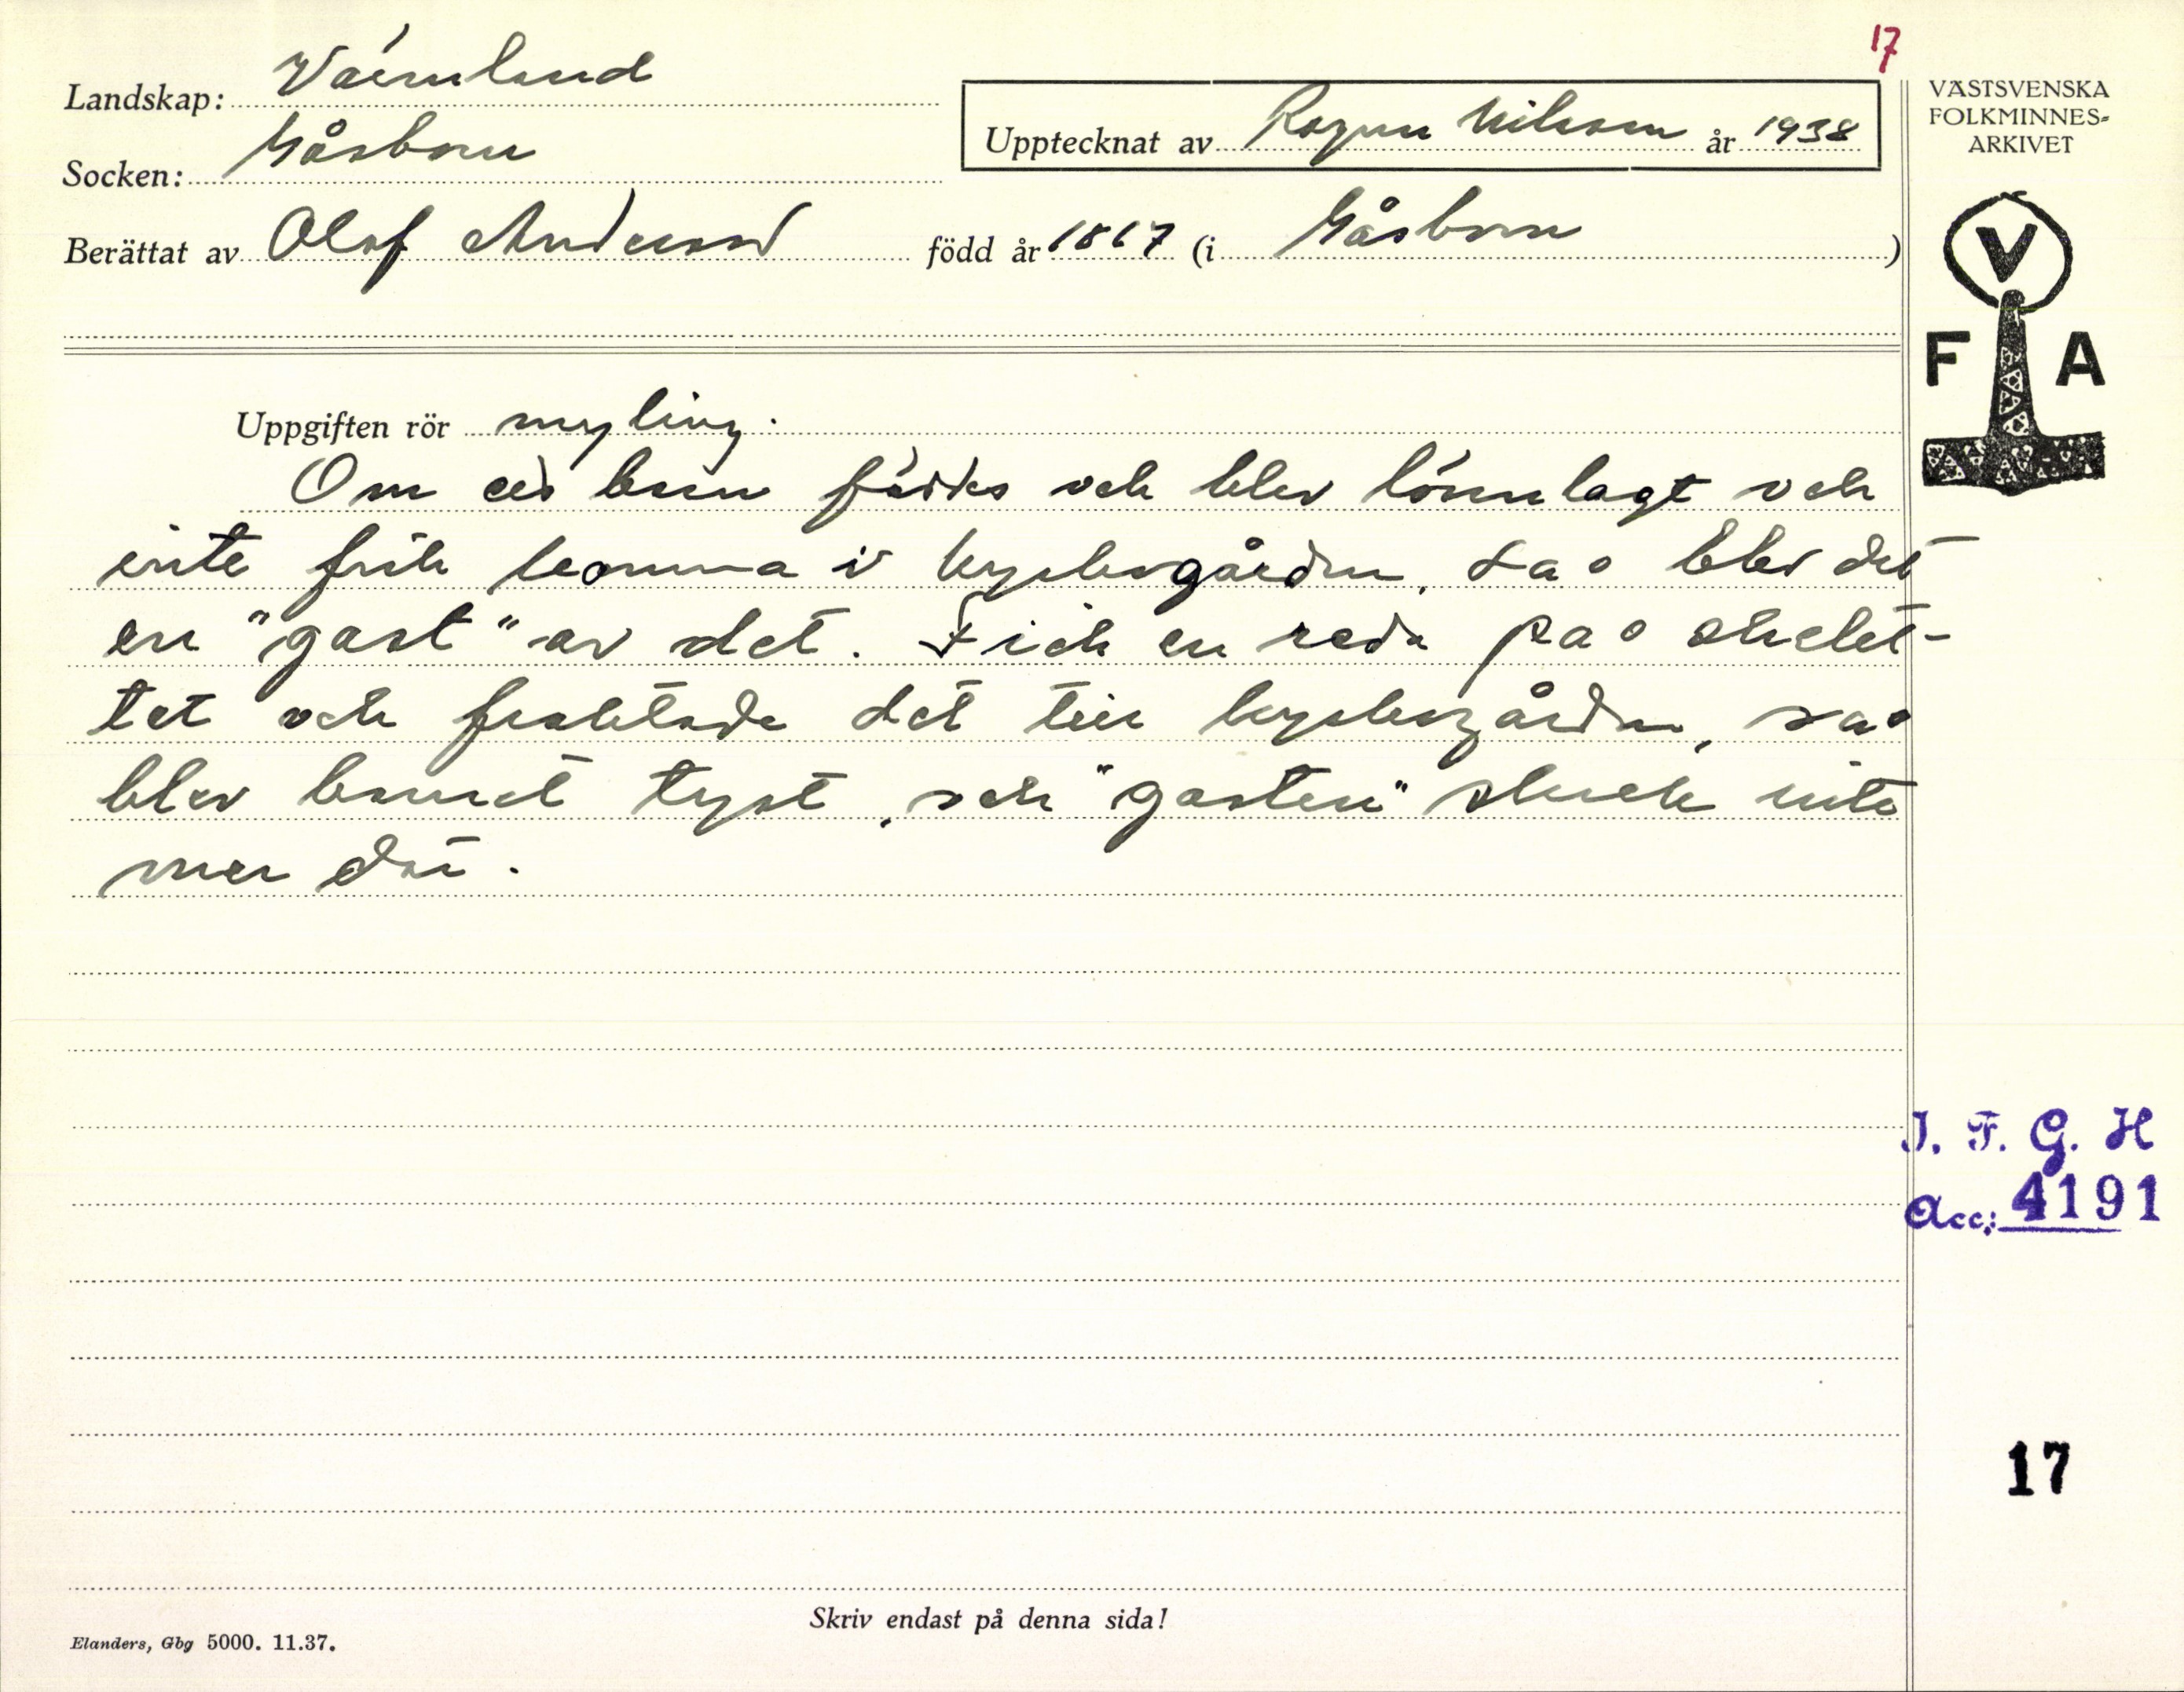 17
Landskap: Värmland
Socken: Gåsborn
Upptecknat av Ragnar Nilsson år 1938
Berättat av Olof Andersson född år 1867 (i Gåsborn)
VÄSTSVENSKA
FOLKMINNES-
ARKIVET
V
F A
Uppgiften rör myling.
Om ett barn föddes och blev lönnlagt och
inte fick komma i kyrkogården, så blev det
en "gast" av det. Fick en reda på skelet-
tet och forslade det till kyrkogården, så
blev barnet tyst, och "gasten" skrek inte
mer där.
I. F. G. H
Acc: 4191
17
Skriv endast på denna sida!
Elanders, Gbg 5000. 11.37.